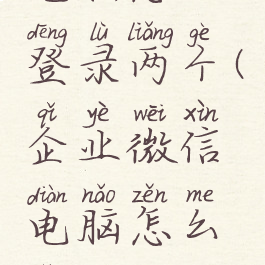 dēng lù liǎng gè
登录两个(
qǐ yè wēi xìn
企业微信
diàn nǎo zěn me
电脑怎么